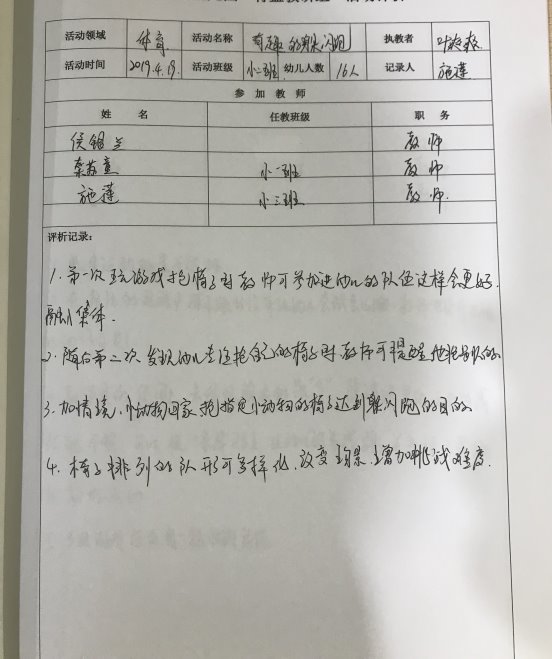 活动领域 体育 活动名称 有趣的躲闪跑 执教者
活动时间 2019.4.19. 活动班级 小二班 幼儿人数 16人 记录人 施蓮
参加教师
姓名 任教班级 职务
侯银兰 教师
小一班 教师
施蓮 小三班 教师.
评析记录:
1. 第一次玩游戏抢椅子时教师可参加进幼儿的队伍这样会更好.
融入集体.
2. 随后第二次发现幼儿专注抢自己的椅子时,教师可提醒他抢别队的.
3. 加情境,小动物回家,抢指定小动物的椅子达到躲闪跑的目的.
4. 椅子排列的队形可多样化,改变场景,增加挑战难度.